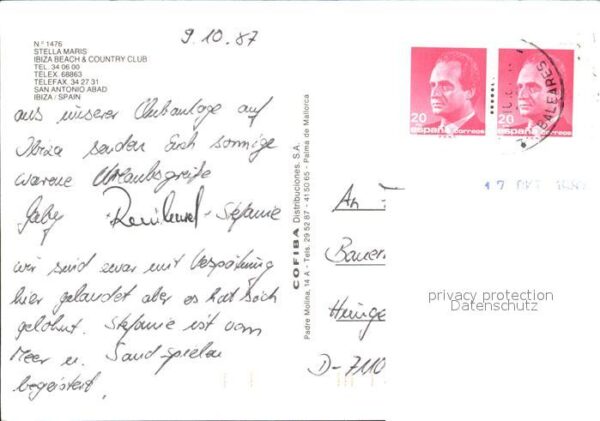 9.10.87
N.º 1476
STELLA MARIS
IBIZA BEACH & COUNTRY CLUB
TEL. 34 06 00
TELEX. 68863
TELEFAX 34 27 31
SAN ANTONIO ABAD
IBIZA / SPAIN
aus unserer Clubanlage auf
Ibiza senden Euch sonnige
warme Urlaubsgrüße
Gaby Stefanie
wir sind zwar mit Verspätung
hier gelandet aber es hat sich
gelohnt. Stefanie ist vom
Meer u. Sandspielen
begeistert.
COFIBA Distribuciones, S.A.
Padre Molina, 14 A - Tels. 29 52 87 - 41 50 65 - Palma de Mallorca
20
españa correos
20
españa correos
BALEARES
An
Bauer
Heinge
D-710
privacy protection
Datenschutz